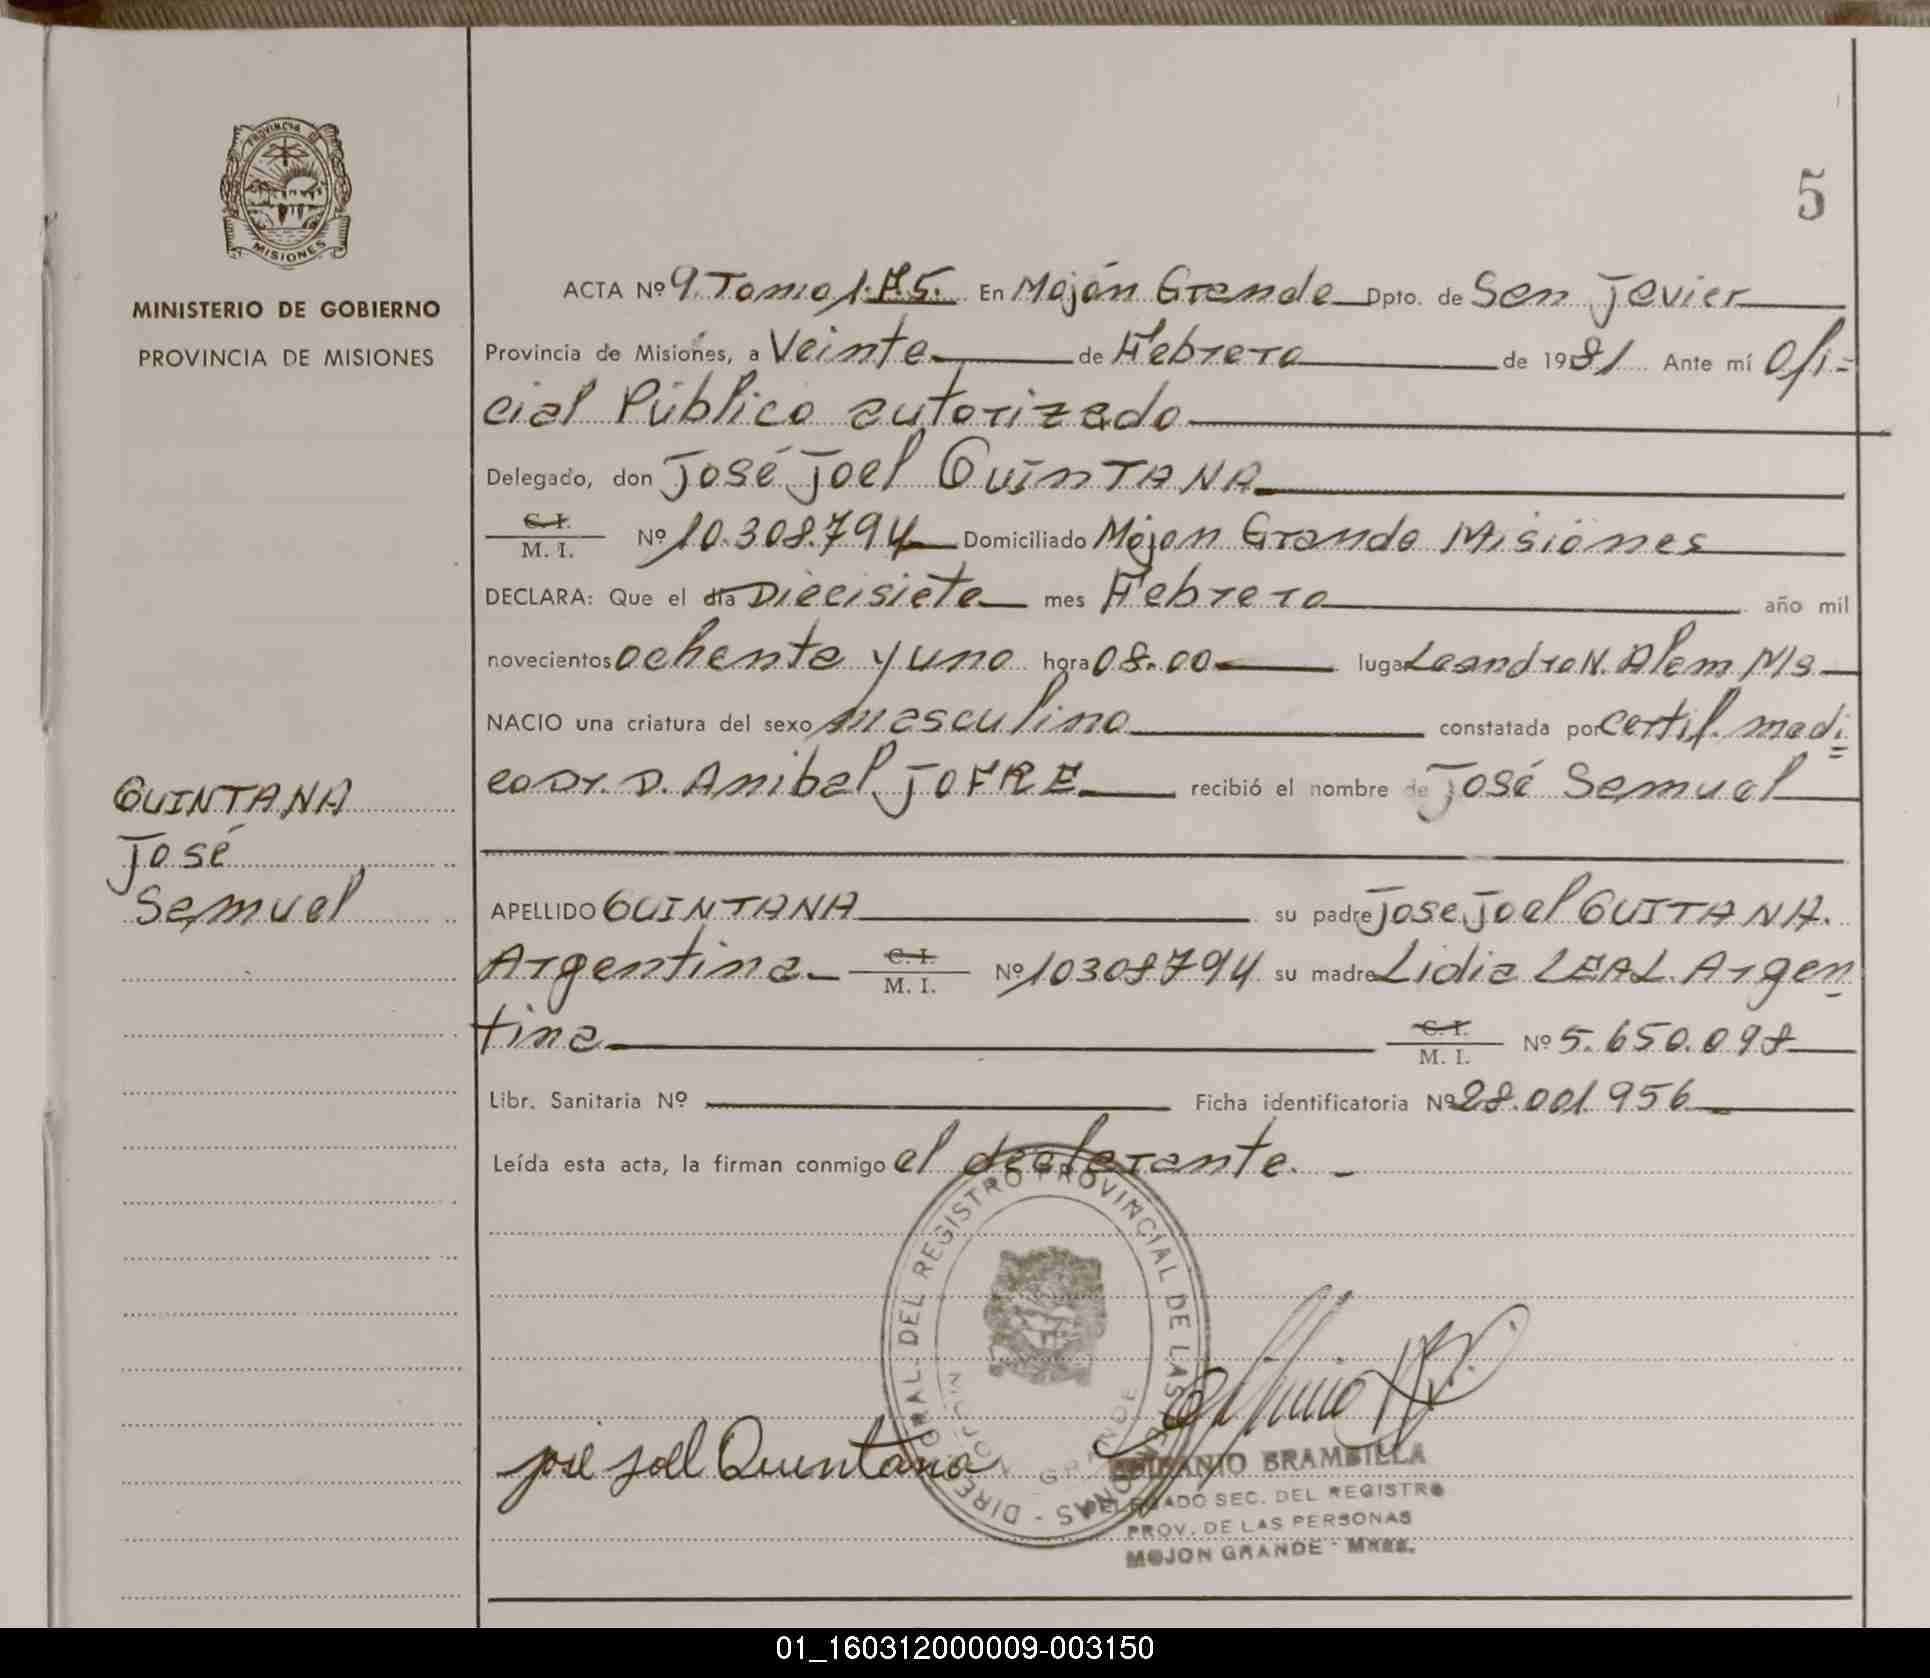 PROVINCIA DE
MISIONES
MINISTERIO DE GOBIERNO
PROVINCIA DE MISIONES
QUINTANA
José
Samuel
5
ACTA Nº 9. Tomo 1. F5. En Mojón Grande Dpto. de San Javier
Provincia de Misiones, a Veinte de Febrero de 1981 Ante mí Ofi=
cial Público autorizado
Delegado, don José Joel QUINTANA
C. I.
M. I. Nº 10.308.794 Domiciliado Mojon Grande Misiones
DECLARA: Que el día Diecisiete mes Febrero año mil
novecientos ochenta y uno hora 08.00 lugar Leandro N. Alem Ms
NACIO una criatura del sexo masculino constatada por certif. medi=
co Dr. D. Anibal JOFRE recibió el nombre de José Samuel
APELLIDO QUINTANA su padre Jose Joel QUITANA.
Argentina C. I.
M. I. Nº 10308794 su madre Lidia LEAL. Argen-
tina C. I.
M. I. Nº 5.650.098
Libr. Sanitaria Nº Ficha identificatoria Nº 28.001.956
Leída esta acta, la firman conmigo el declarante. -
DIRE GRAL. DEL REGISTRO PROVINCIAL DE LAS PERSONAS -
MOJON GRANDE
jose joel Quintana
EPIFANIO BRAMBILLA
DELEGADO SEC. DEL REGISTRO
PROV. DE LAS PERSONAS
MOJON GRANDE - Mnes.
01_160312000009-003150